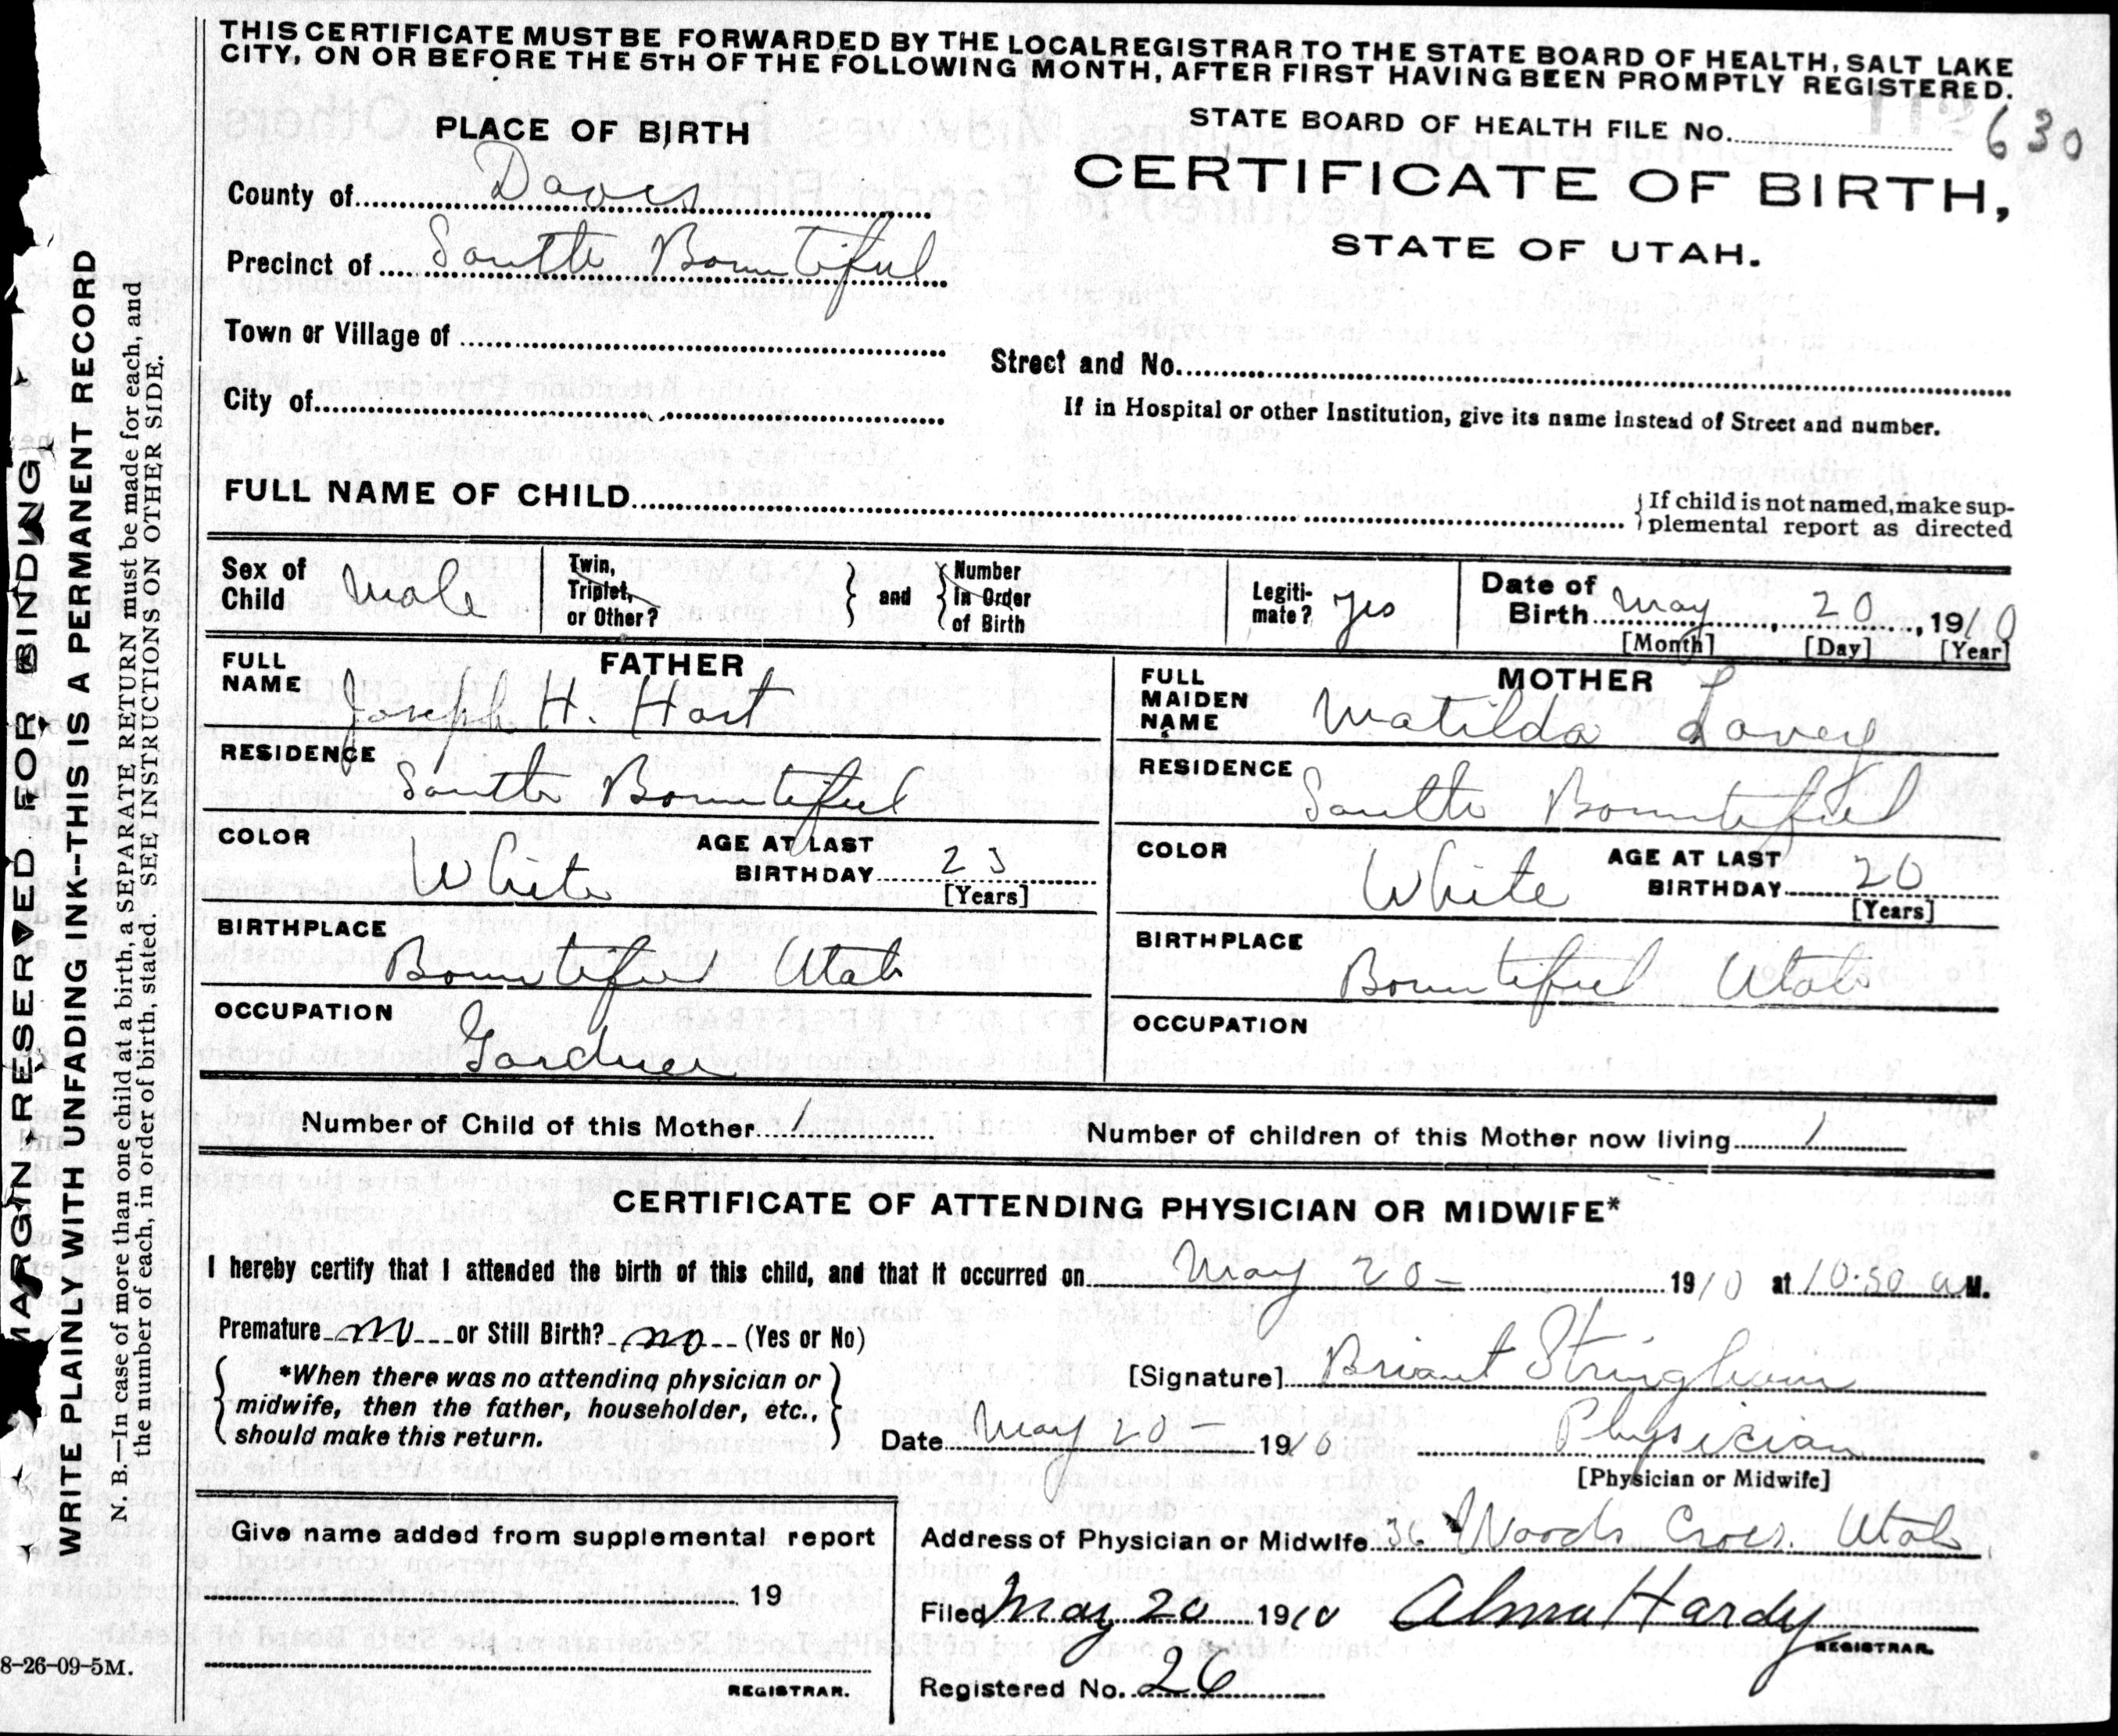 THIS CERTIFICATE MUST BE FORWARDED BY THE LOCAL REGISTRAR TO THE STATE BOARD OF HEALTH, SALT LAKE
CITY, ON OR BEFORE THE 5TH OF THE FOLLOWING MONTH, AFTER FIRST HAVING BEEN PROMPTLY REGISTERED.
PLACE OF BIRTH
STATE BOARD OF HEALTH FILE No. 630
County of Davis
CERTIFICATE OF BIRTH,
Precinct of South Bountiful
STATE OF UTAH.
Town or Village of
Street and No.
City of
If in Hospital or other Institution, give its name instead of Street and number.
FULL NAME OF CHILD
{ If child is not named, make sup-
plemental report as directed
Sex of Child Male
Twin, Triplet, or Other?
} and {
Number In Order of Birth
Legiti-mate? yes
Date of Birth May 20, 1910
[Month] [Day] [Year]
FATHER
FULL NAME Joseph H. Hart
RESIDENCE South Bountiful
COLOR White
AGE AT LAST BIRTHDAY 23
[Years]
BIRTHPLACE Bountiful Utah
OCCUPATION Gardner
MOTHER
FULL MAIDEN NAME Matilda Lovey
RESIDENCE South Bountiful
COLOR White
AGE AT LAST BIRTHDAY 20
[Years]
BIRTHPLACE Bountiful Utah
OCCUPATION
Number of Child of this Mother 1
Number of children of this Mother now living 1
CERTIFICATE OF ATTENDING PHYSICIAN OR MIDWIFE*
I hereby certify that I attended the birth of this child, and that it occurred on May 20- 1910 at 10.50 a M.
Premature no or Still Birth? no (Yes or No)
{ *When there was no attending physician or
midwife, then the father, householder, etc.,
should make this return. }
[Signature] Briant Stringham
Date May 20- 1910
Physician
[Physician or Midwife]
Give name added from supplemental report
19
REGISTRAR.
Address of Physician or Midwife 36 Woods Cross. Utah
Filed May 20 1910 Alma Hardy
REGISTRAR.
Registered No. 26
MARGIN RESERVED FOR BINDING
WRITE PLAINLY WITH UNFADING INK--THIS IS A PERMANENT RECORD
N. B.—In case of more than one child at a birth, a SEPARATE RETURN must be made for each, and
the number of each, in order of birth, stated. SEE INSTRUCTIONS ON OTHER SIDE.
8-26-09-5M.